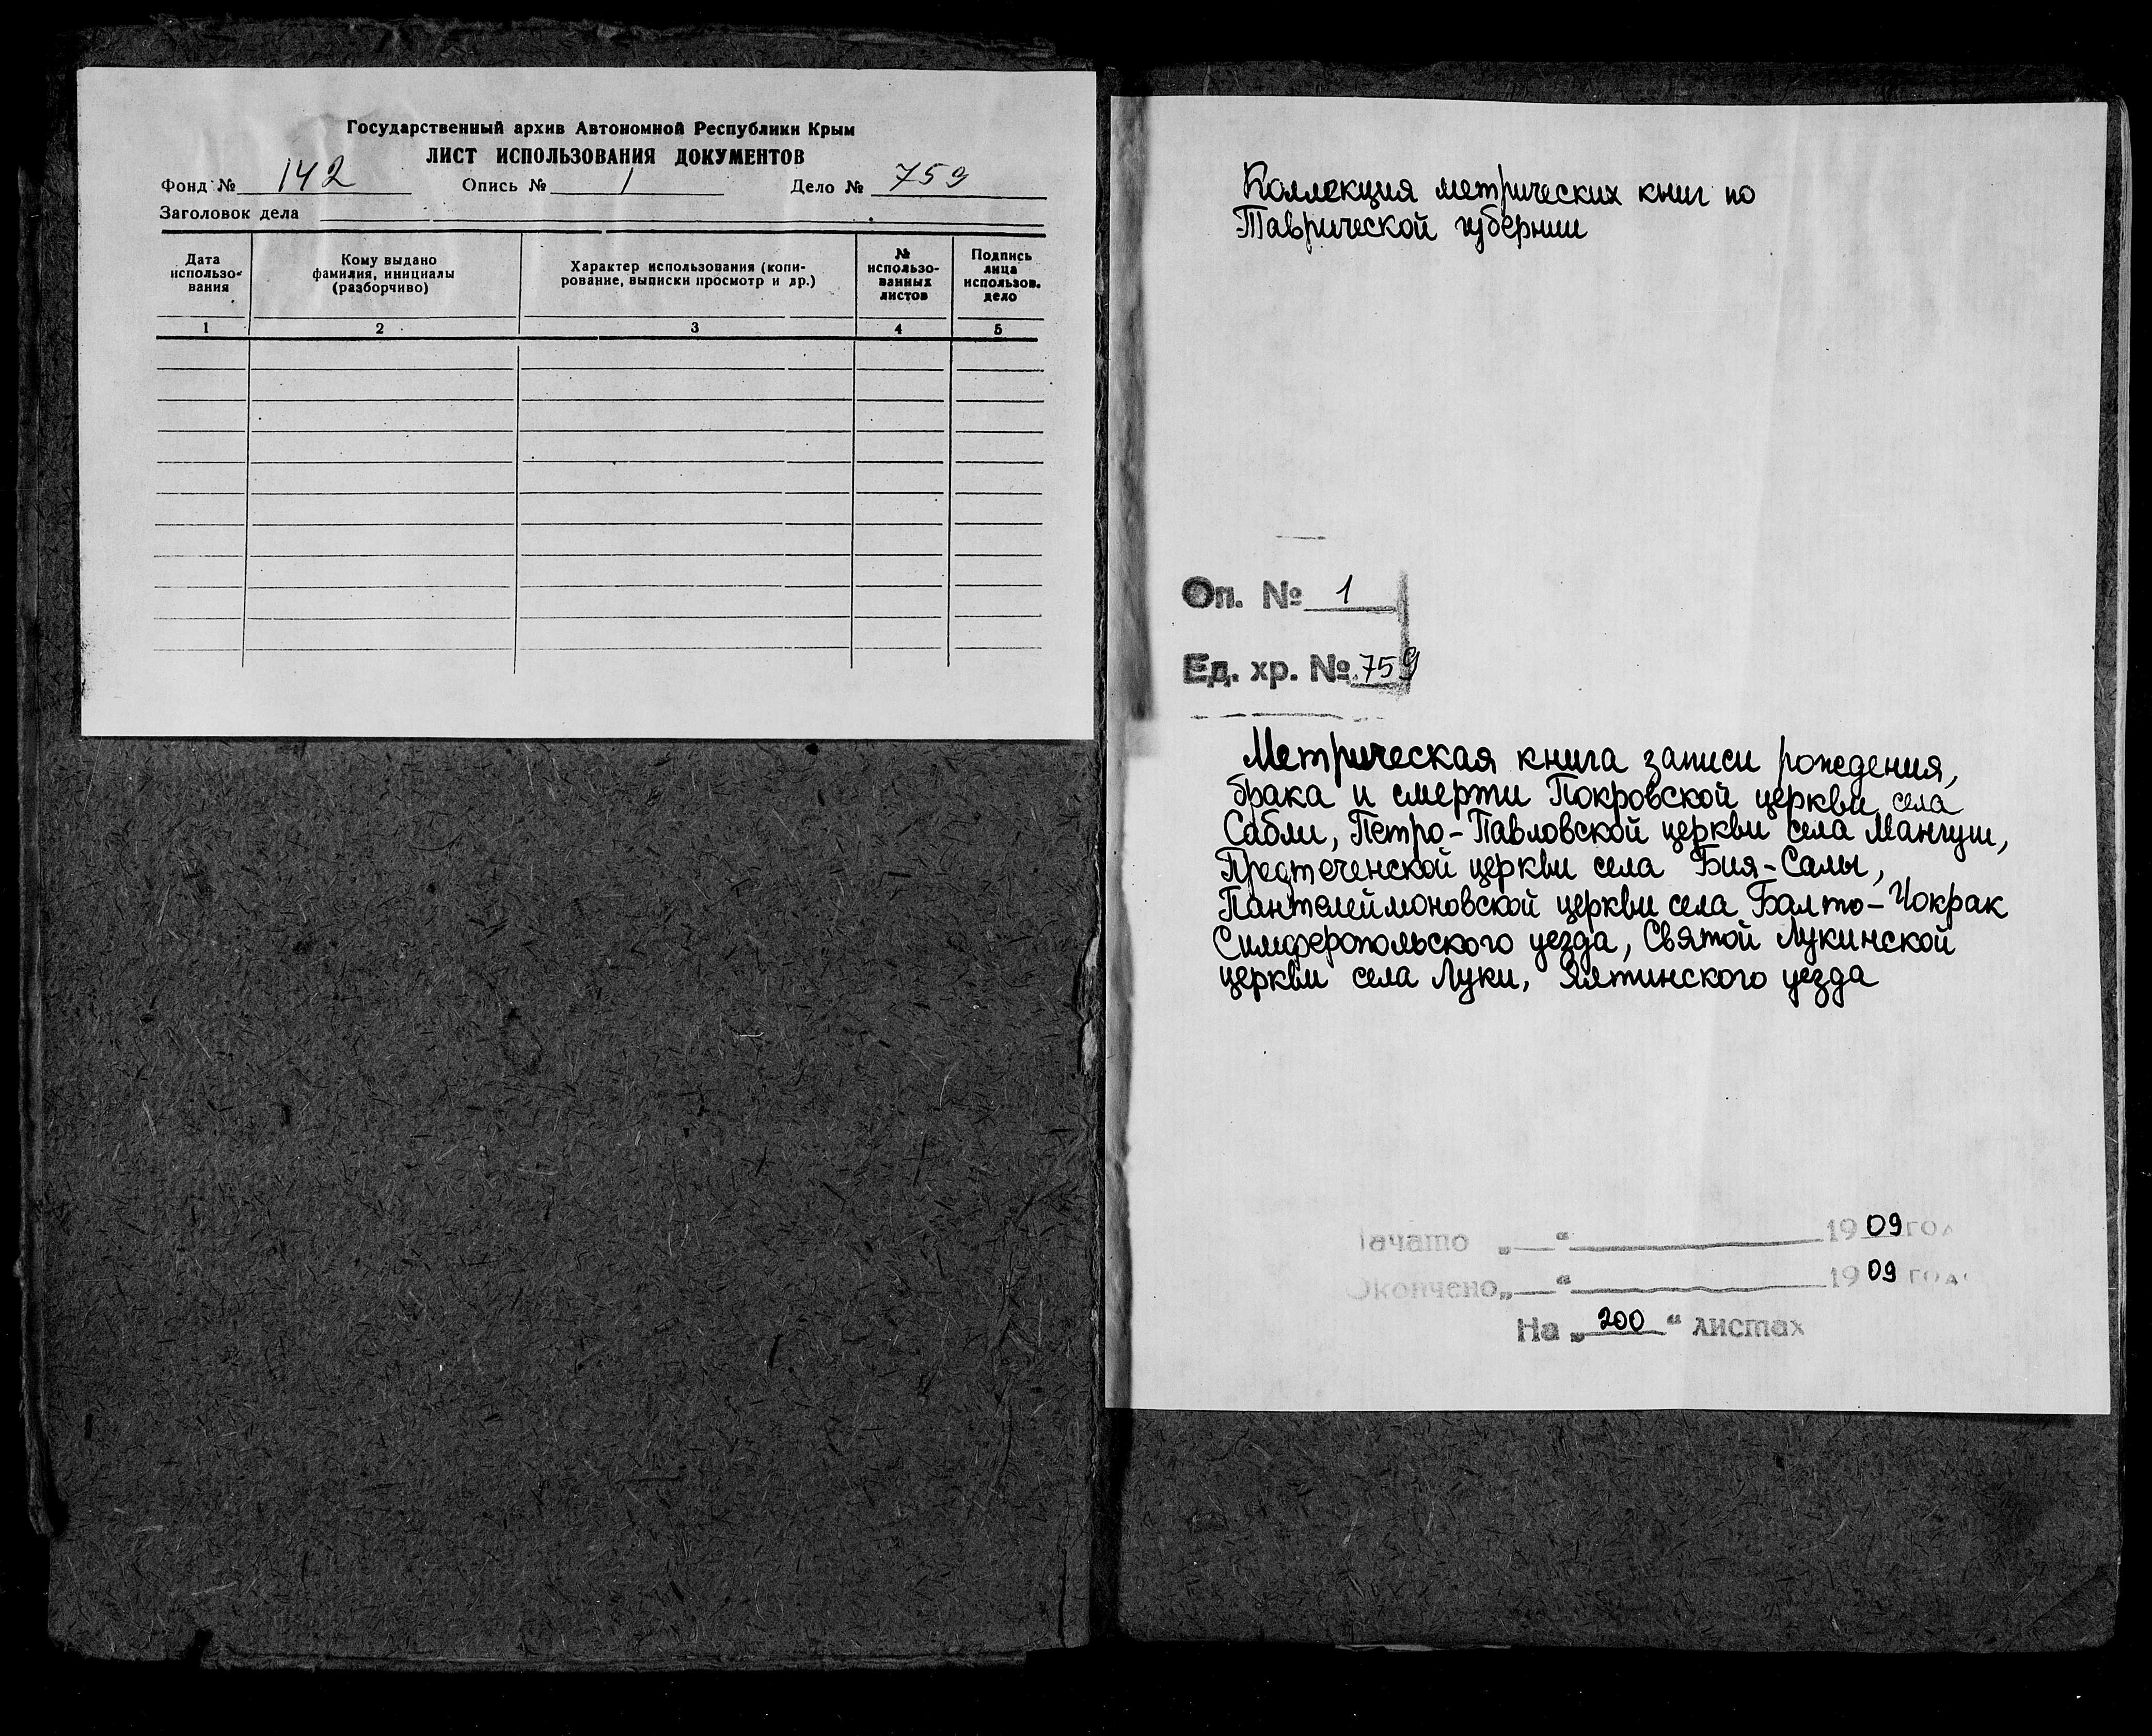 Государственный архив Автономной Республики Крым
ЛИСТ ИСПОЛЬЗОВАНИЯ ДОКУМЕНТОВ
Фонд № 142 Опись № 1 Дело № 759
Заголовок дела
Дата использо-вания
Кому выдано фамилия, инициалы (разборчиво)
Характер использования (копи-рование, выписки просмотр и др.)
№ использо-ванных листов
Подпись лица использов. дело
1 2 3 4 5
Коллекция метрических книг по
Таврической губернии
Оп. № 1
Ед. хр. № 759
Метрическая книга записи рождения,
брака и смерти Покровской церкви села
Сабли, Петро-Павловской церкви села Мангуш,
Предтеченской церкви села Бия-Салы,
Пантелеймоновской церкви села Балто-Чокрак
Симферопольского уезда, Святой Лукинской
церкви села Луки, Ялтинского уезда
Начато „ “ 1909 год
Окончено „ “ 1909 года
На „ 200 “ листах